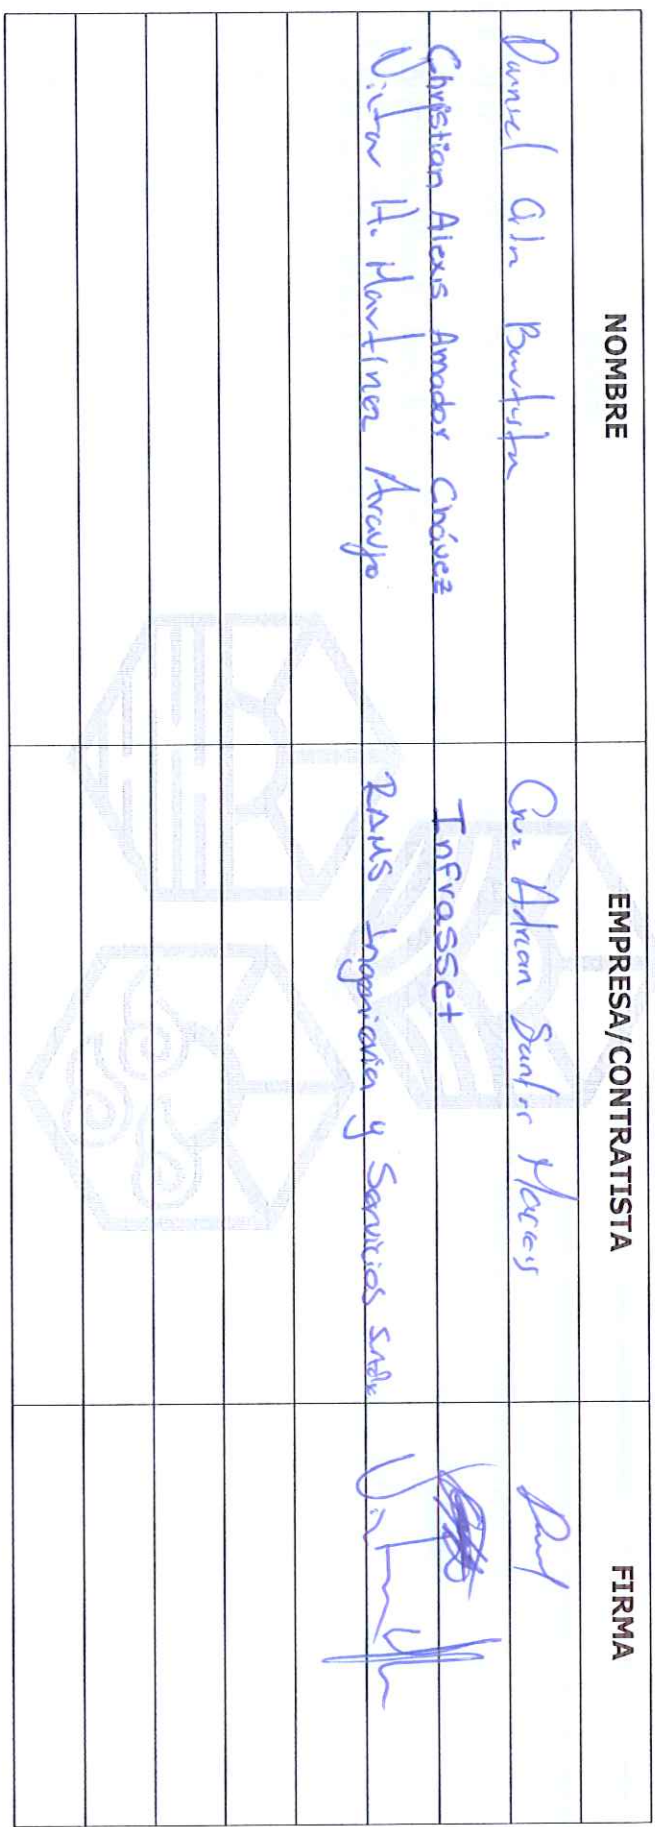 NOMBRE EMPRESA/CONTRATISTA FIRMA
Daniel Bautista Cruz Adrian Santos Macias
Christian Alexis Amador Chávez Infrasset
Victor H. Martínez Araujo RAMS Ingenieria y Servicios